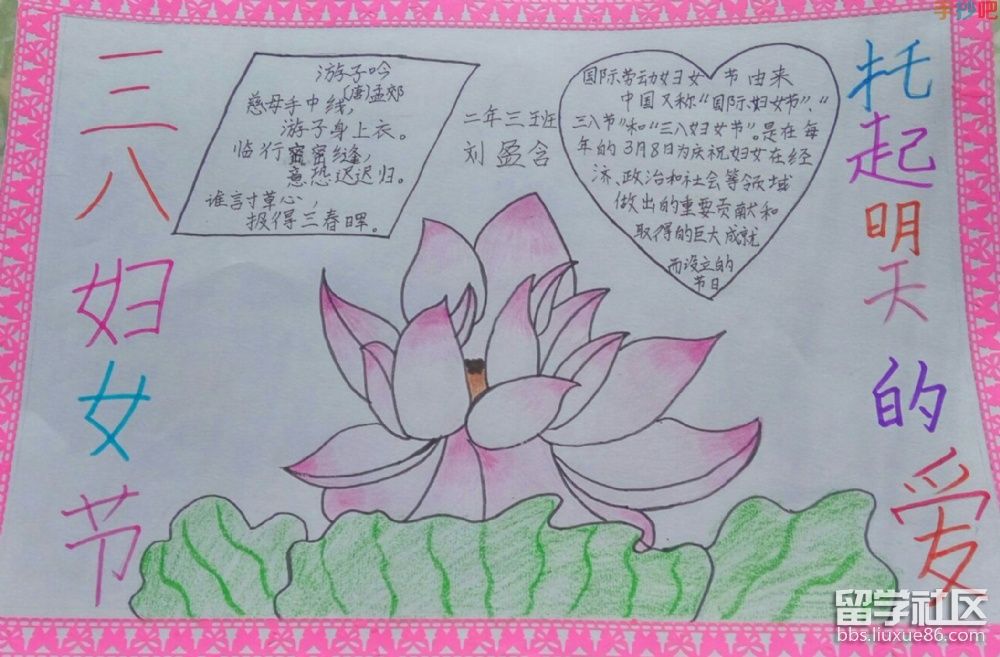 手抄吧
三八妇女节
游子吟
(唐)孟郊
慈母手中线,
游子身上衣。
临行密密缝,
意恐迟迟归。
谁言寸草心,
报得三春晖。
二年三班
刘盈含
国际劳动妇女节由来
中国又称“国际妇女节”、“
三八节”和“三八妇女节”。是在每
年的3月8日为庆祝妇女在经
济、政治和社会等领域
做出的重要贡献和
取得的巨大成就
而设立的
节日
托起明天的爱
留学社区
bbs.liuxue86.com